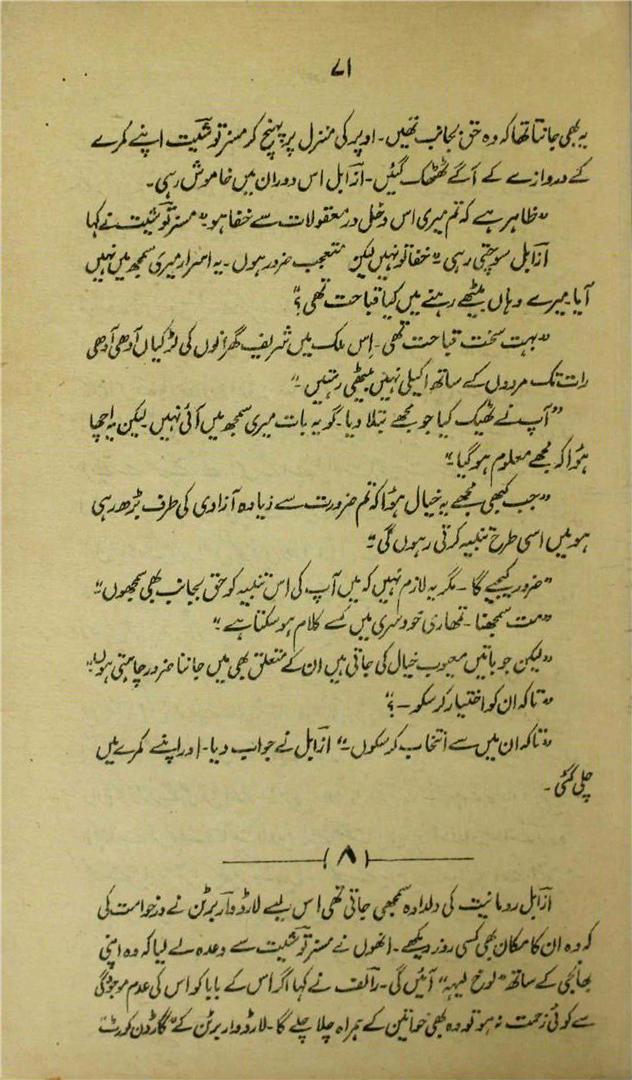 ۷۱
یہ بھی جانتا تھا کہ وہ حق بجانب تھیں۔ اوپر کی منزل پر پہنچ کر مسز توشیت اپنے کمرے
کے دروازے کے آگے ٹھٹھک گئیں۔ ازآبل اس دوران میں خاموش رہی۔
"ظاہر ہے کہ تم میری اس دخل در معقولات سے خفا ہو" مسز توشیت نے کہا
ازآبل سوچتی رہی "خفا تو نہیں لیکن متعجب ضرور ہوں۔ یہ اسرار میری سمجھ میں نہیں
آیا۔ میرے وہاں بیٹھے رہنے میں کیا قباحت تھی؟"
"بہت سخت قباحت تھی۔ اِس ملک میں شریف گھرانوں کی لڑکیاں آدھی آدھی
رات تک مردوں کے ساتھ اکیلی نہیں بیٹھی رہتیں۔"
"آپ نے ٹھیک کیا جو مجھے بتلا دیا۔ گو یہ بات میری سمجھ میں آئی نہیں۔ لیکن یہ اچھا
ہؤا کہ مجھے معلوم ہو گیا"
"جب کبھی مجھے یہ خیال ہؤا کہ تم ضرورت سے زیادہ آزادی کی طرف بڑھ رہی
ہو میں اسی طرح تنبیہ کرتی رہوں گی"
"ضرور کیجیے گا۔ مگر یہ لازم نہیں کہ میں آپ کی اس تنبیہ کو حق بجانب بھی سمجھوں"
"مت سمجھنا۔ تمھاری خودسری میں کسے کلام ہو سکتا ہے"
"لیکن جو باتیں معیوب خیال کی جاتی ہیں ان کے متعلق بھی میں جاننا ضرور چاہتی ہوں"
"تاکہ ان کو اختیار کر سکو۔؟"
"تاکہ ان میں سے انتخاب کر سکوں۔" ازآبل نے جواب دیا۔ اور اپنے کمرے میں
چلی گئی۔
(۸)
ازآبل رومانیت کی دلدادہ سمجھی جاتی تھی اس لیے لارڈ وآربرٹن نے درخواست کی
کہ وہ ان کا مکان بھی کسی روز دیکھے۔ انھوں نے مسز توشیت سے وعدہ لے لیا کہ وہ اپنی
بھانجی کے ساتھ "لوخ لیہہ" آئیں گی۔ رآلف نے کہا اگر اس کے بابا کو اس کی عدم موجودگی
سے کوئی زحمت نہ ہو تو وہ بھی خواتین کے ہمراہ چلا چلے گا۔ لارڈ وآربرٹن کے "گارڈن کورٹ"